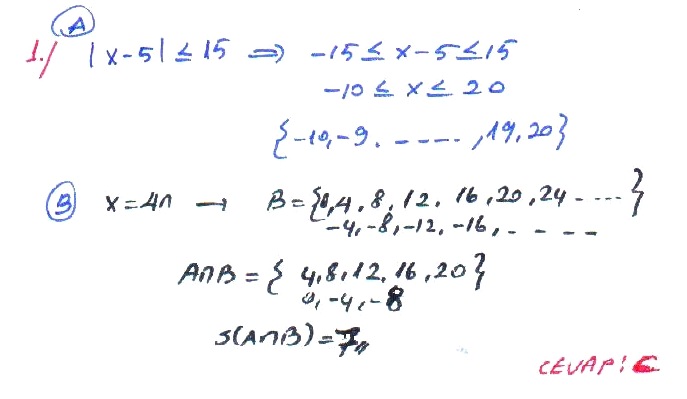 A
1./ |x-5| ≤ 15 ⇒ -15 ≤ x-5 ≤ 15
-10 ≤ x ≤ 20
{-10, -9, ----, 19, 20}
B x=4n → B={0,4, 8, 12, 16, 20, 24 - ----}
-4, -8, -12, -16, - - - -
A∩B = { 4, 8, 12, 16, 20}
0, -4, -8
S(A∩B) = 7,,
CEVAP: C